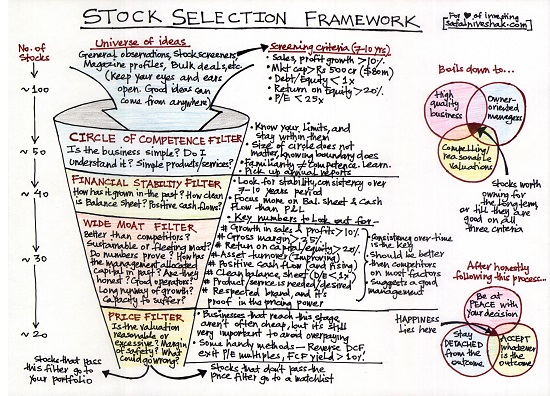 STOCK SELECTION FRAMEWORK
For ♥ of Investing
safalniveshak.com
No. of
Stocks
~ 100
~ 50
~ 40
~ 30
~ 20
Universe of ideas
General observations, Stock screeners,
Magazine profiles, Bulk deals, etc.
(Keep your eyes and ears
open. Good ideas can
come from anywhere)
Screening Criteria (7-10 yrs)
• Sales, profit growth >10%
• Mkt cap > Rs 500 cr ($80m)
• Debt/Equity < 1x
• Return on Equity > 20%
• P/E < 25x
CIRCLE OF COMPETENCE FILTER
Is the business simple? Do I
understand it? Simple products/services?
• Know your limits, and
stay within them
• Size of circle does not
matter, knowing boundary does
• Familiarity ≠ Competence. Learn.
• Pick up annual reports
FINANCIAL STABILITY FILTER
How has it grown in the past? How clean
is Balance Sheet? Positive cash flows?
• Look for stability, consistency over
7-10 years period
• Focus more on Bal. Sheet & Cash
Flow than P&L
WIDE MOAT FILTER
Better than competitors?
Sustainable or fleeting moat?
Do numbers prove? How has
the management allocated
capital in past? Are they
honest? Good operators?
Long runway of growth?
Capacity to suffer?
• Key numbers to look out for -
# Growth in sales & profits >10%
# Gross margin > 35%
# Return on capital/equity > 20%
# Asset-turnover (improving)
# Positive cash flow (and rising)
# Clean balance sheet (D/E < 1x)
# Product/service needed/desired
# Respected brand, and it's
proof in the pricing power
• Consistency over time
is the key
• Should be better
than competitors
on most factors
• Suggests a good
management
PRICE FILTER
Is the valuation
reasonable or
excessive? Margin
of safety? What
could go wrong?
• Businesses that reach this stage
aren't often cheap, but it's still
very important to avoid overpaying
• Some handy methods - Reverse DCF,
exit P/E multiples, FCF yield > 10%
Stocks that pass
this filter go to
your portfolio
Stocks that don't pass the
price filter go to a watchlist
Boils down to...
High
quality
business
Owner-
oriented
managers
Compelling/
reasonable
valuations
Stocks worth
owning for
the long term,
or till they are
good on all
three criteria
After honestly
following this process...
Be at
PEACE with
your decision
HAPPINESS
lies here
Stay
DETACHED
from the
outcome
ACCEPT
whatever
is the
outcome